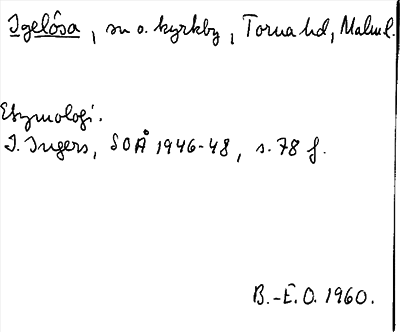 Igelösa, sn o. kyrkby, Torna hd, Malm l.
Etymologi.
I. Ingers, SOÅ 1946-48, s. 78 f.
B.-E.O. 1960.